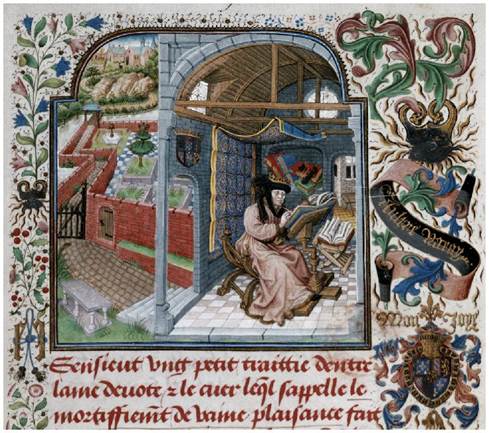 Sensieut vng petit traittie dentre
lame deuote z le cuer leql sappelle le
mortiffiemt de vaine plaisance fait
Mon Joye